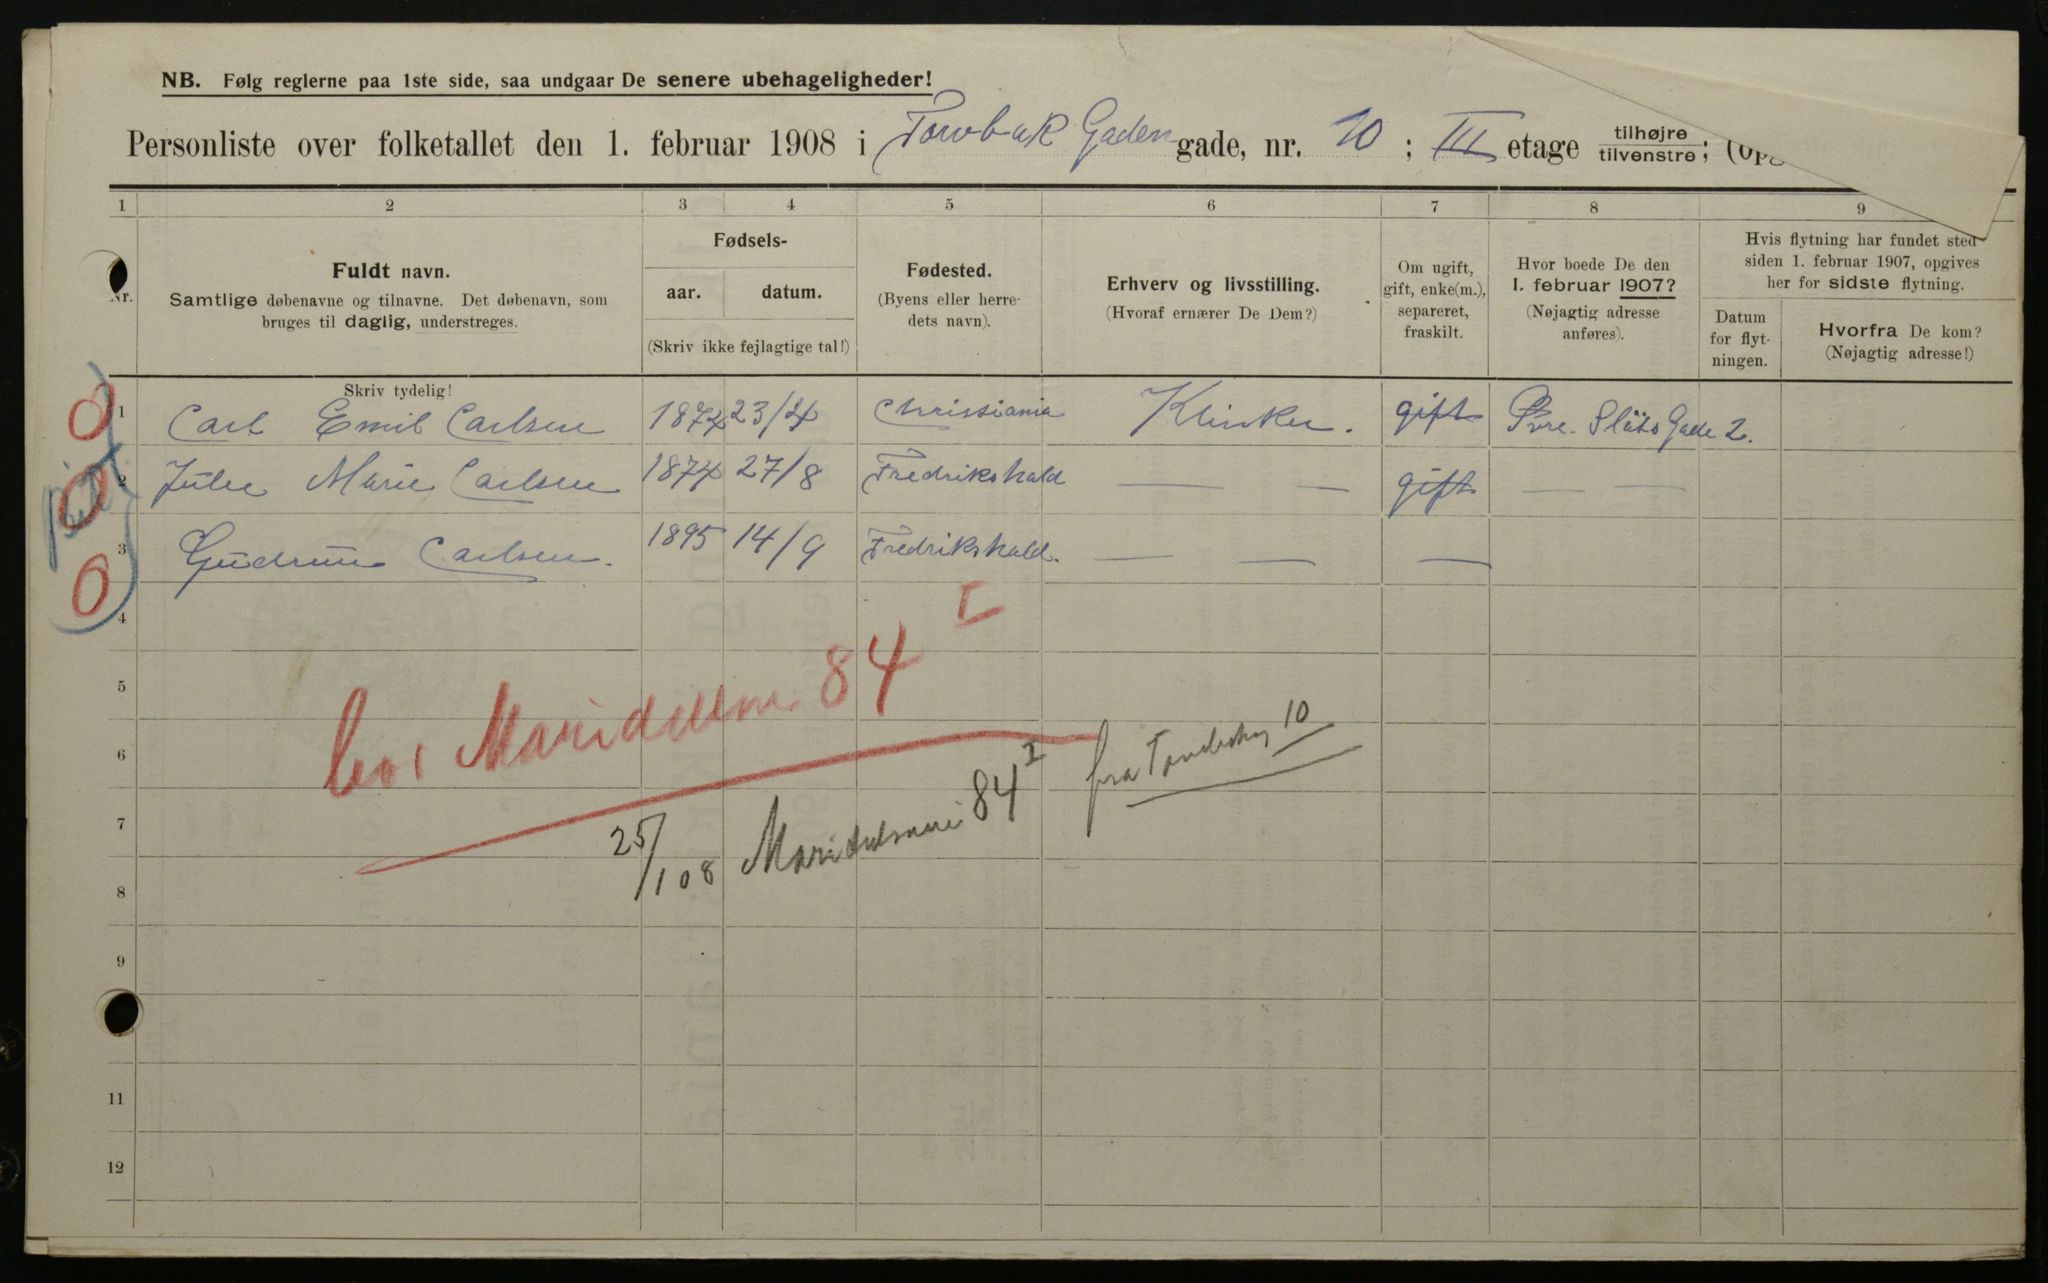 NB. Følg reglerne paa 1ste side, saa undgaar De senere ubehageligheder!
Personliste over folketallet den 1. februar 1908 i Torvbak Gaden gade, nr. 10 ; III etage tilhøjre tilvenstre; (opg
1 2 3 4 5 6 7 8 9
Nr.
Fuldt navn.
Samtlige døbenavne og tilnavne. Det døbenavn, som
bruges til daglig, understreges.
Fødsels-
aar. datum.
(Skriv ikke fejlagtige tal!)
Fødested.
(Byens eller herre-
dets navn).
Erhverv og livsstilling.
(Hvoraf ernærer De Dem?)
Om ugift,
gift, enke(m.),
separeret,
fraskilt.
Hvor boede De den
1. februar 1907?
(Nøjagtig adresse
anføres).
Hvis flytning har fundet sted
siden 1. februar 1907, opgives
her for sidste flytning.
Datum
for flyt-
ningen.
Hvorfra De kom?
(Nøjagtig adresse!)
Skriv tydelig!
1 Carl Emil Carlsen 1874 23/4 Christiania Klinker. gift Øvre Slots Gade 2.
2 Julie Marie Carlsen 1874 27/8 Fredrikshald — — gift — —
3 Gudrun Carlsen. 1895 14/9 Fredrikshald. — — —
4
5
6
7
8
9
11
12
bor Maridalsvn. 84 I
25/1 08 Maridalsveien 84 I
fra 10